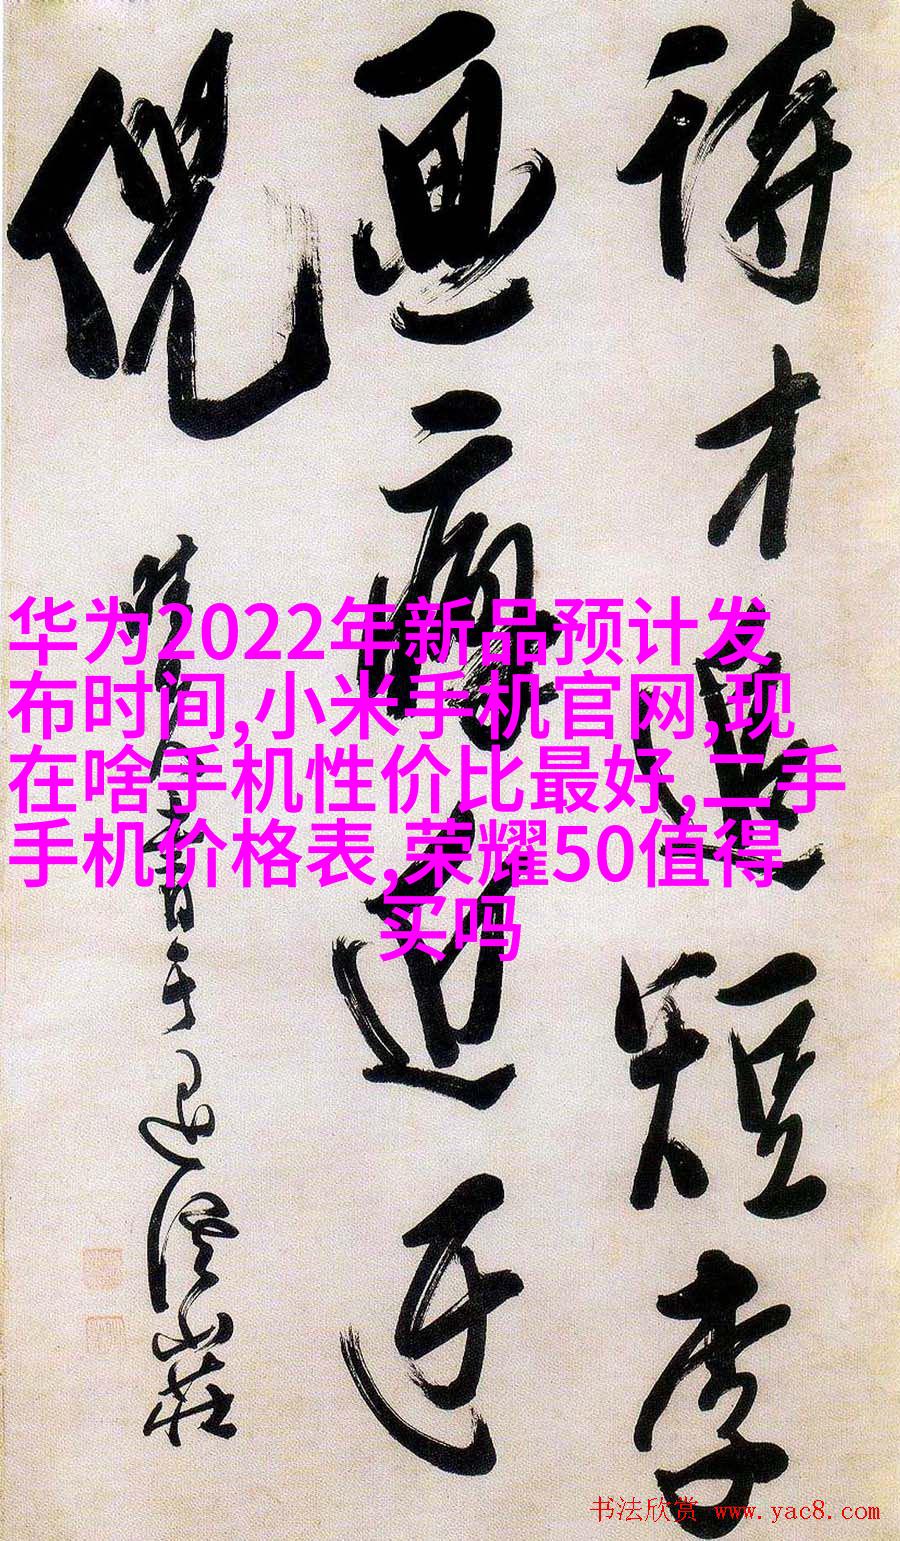 詩才追短李
画迂
倪
书于
山莊
华为2022年新品预计发
布时间,小米手机官网,现
在啥手机性价比最好,二手
手机价格表,荣耀50值得
买吗
书法欣赏 www.yac8.com